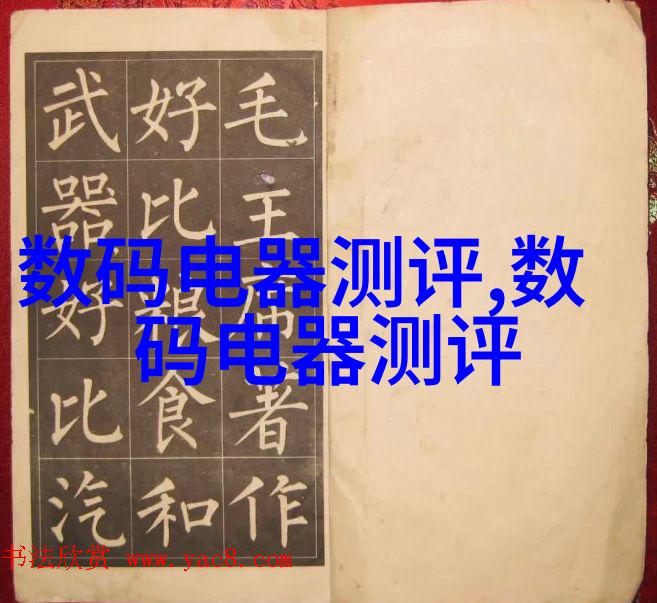 毛主席著作
好比粮食和
武器好比汽
数码电器测评,数
码电器测评
书法欣赏 www.yac8.com